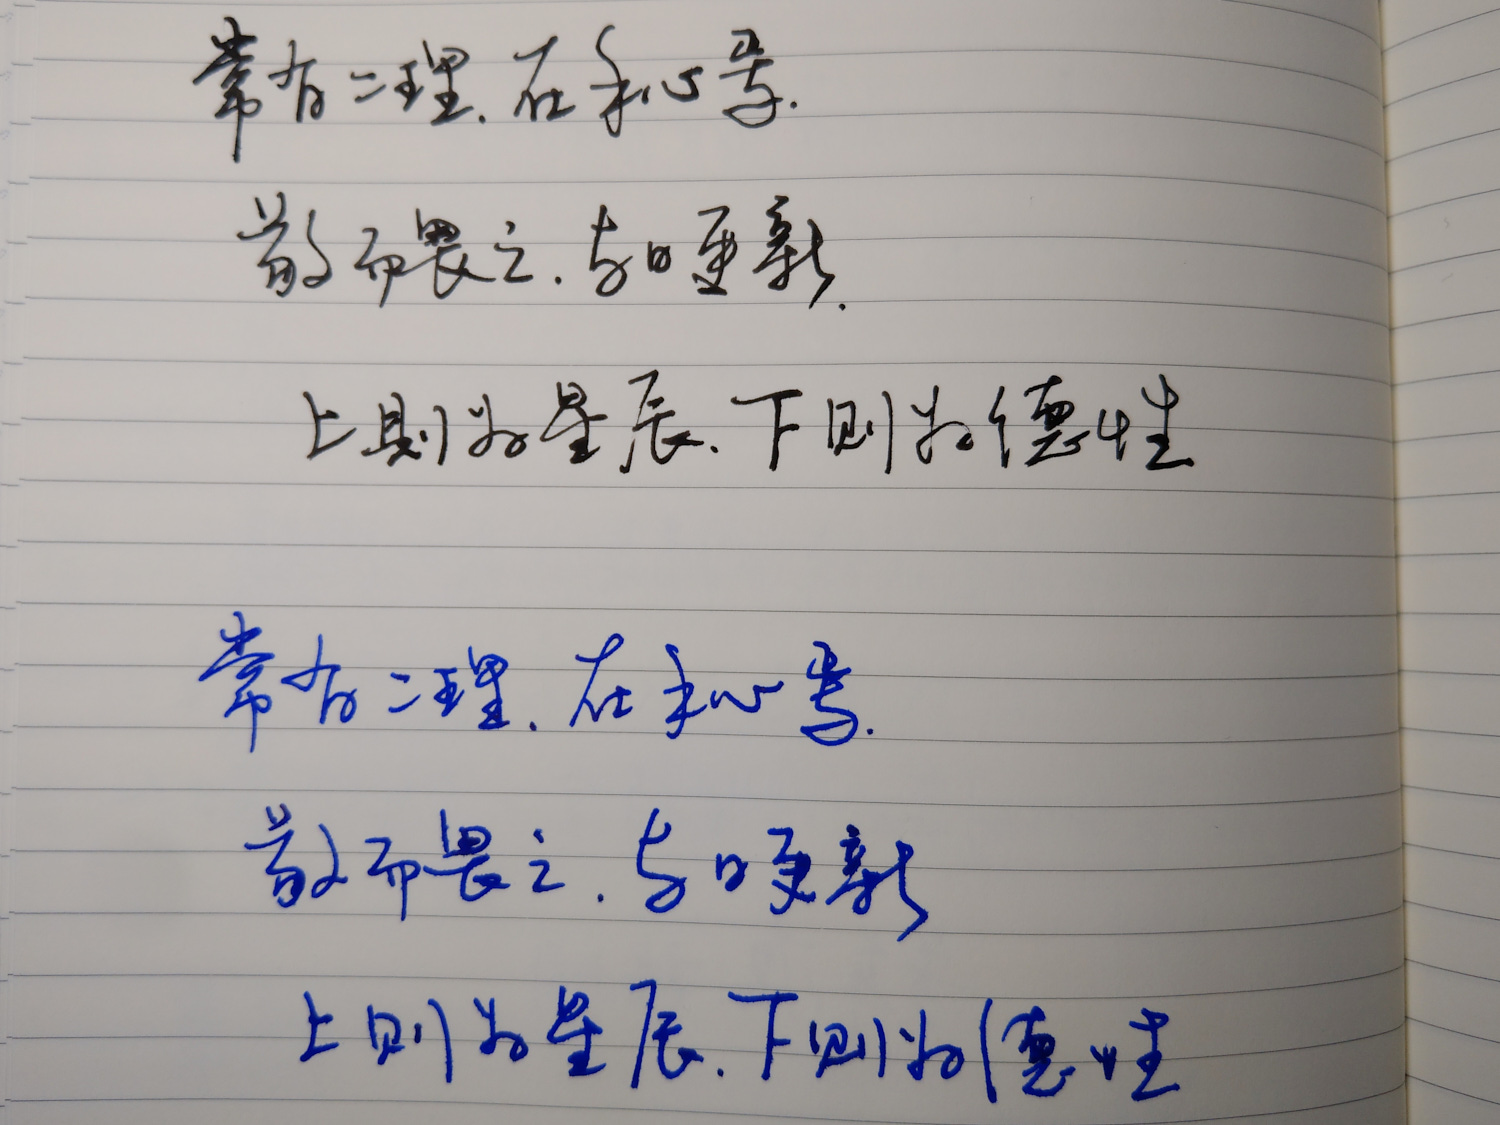 常有二理.在我心焉.
敬而畏之.与日更新.
上则为星辰.下则为德性
常有二理.在我心焉.
敬而畏之.与日更新
上则为星辰.下则为德性